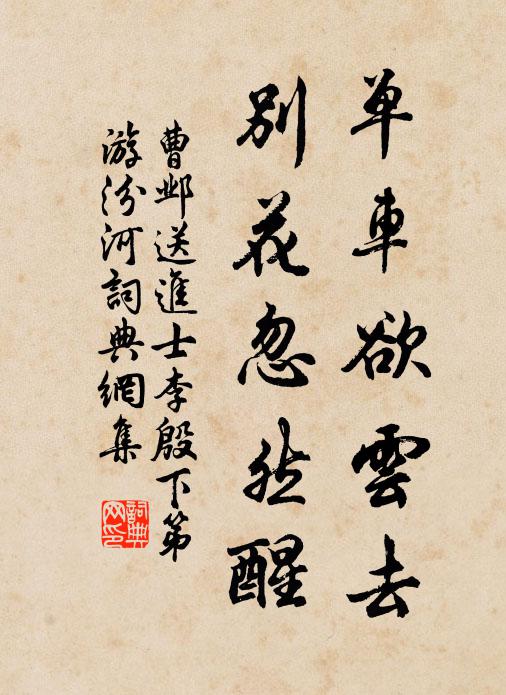 单車欲雲去
别花忽然醒
曹邺送進士李殷下第
游汾河詞典網集
詞典网印